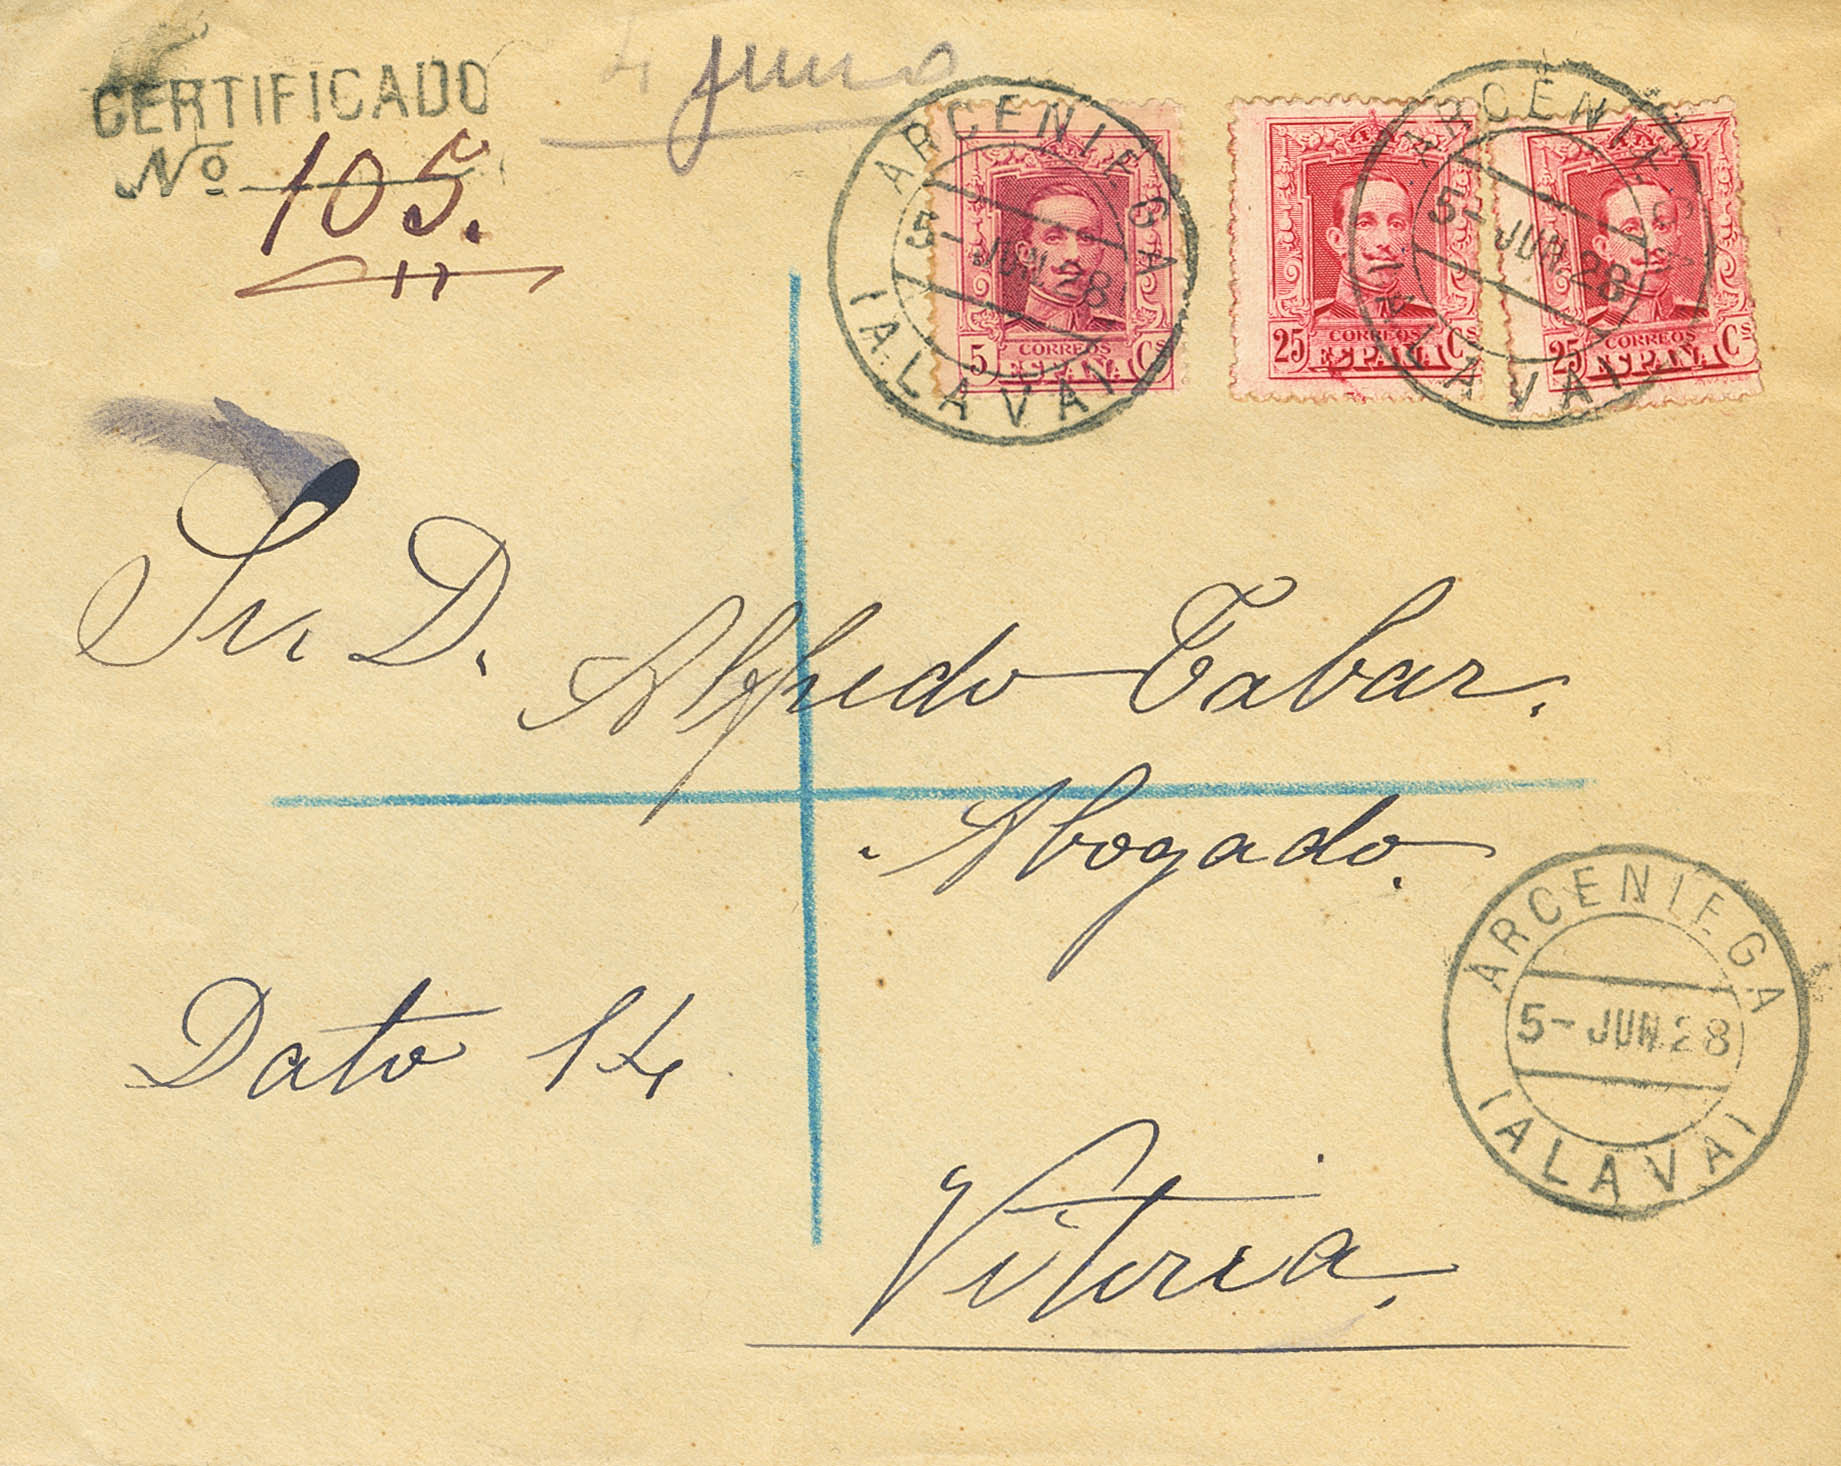 CERTIFICADO
Nº 105.
4 Junio
ARCENIEGA
5-JUN.28
(ALAVA)
5 CORREOS Cs
ESPAÑA
ARCENIEGA
5-JUN.28
(ALAVA)
25 CORREOS Cs
ESPAÑA
25 CORREOS Cs
ESPAÑA
Sr. D. Alfredo Tabar.
Abogado.
ARCENIEGA
5-JUN.28
(ALAVA)
Dato 14
Vitoria.